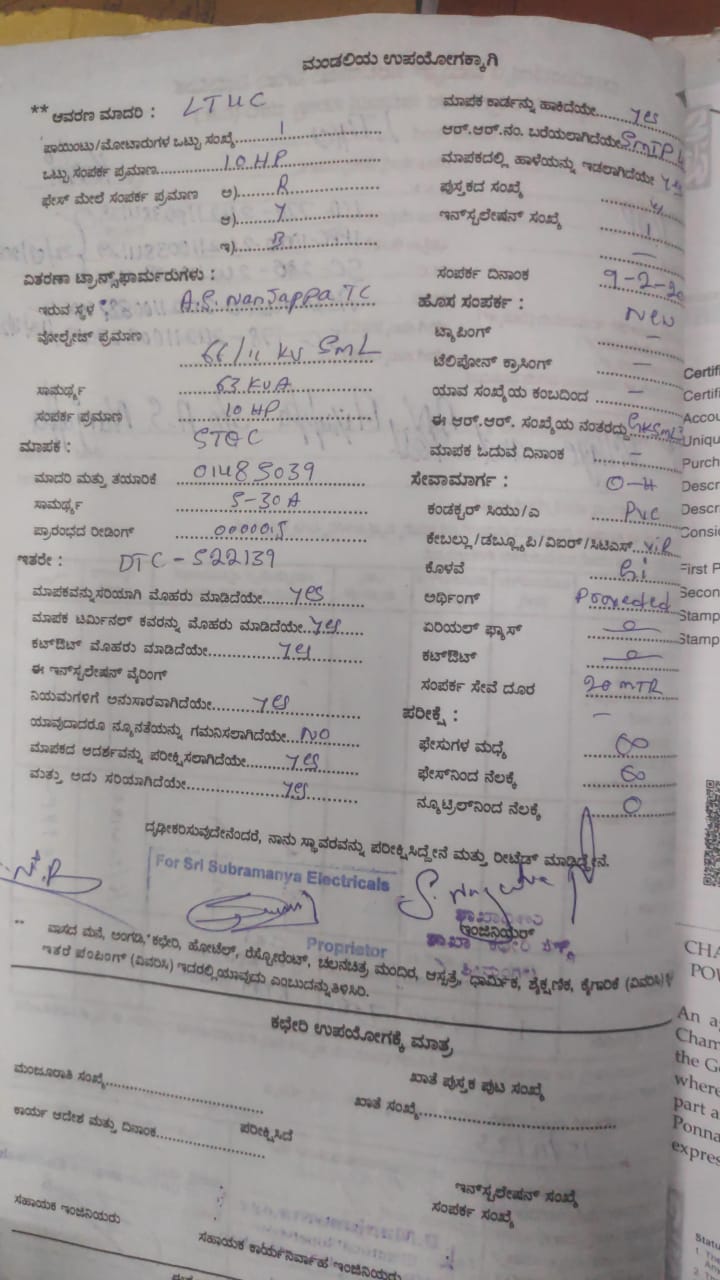 ಮಂಡಲಿಯ ಉಪಯೋಗಕ್ಕಾಗಿ
** ಆವರಣ ಮಾದರಿ : LTUC
ಪಾಯಿಂಟು/ಮೋಟಾರುಗಳ ಒಟ್ಟು ಸಂಖ್ಯೆ 1
ಒಟ್ಟು ಸಂಪರ್ಕ ಪ್ರಮಾಣ 10 HP
ಫೇಸ್ ಮೇಲೆ ಸಂಪರ್ಕ ಪ್ರಮಾಣ ಅ) R
ಆ) Y
ಇ) B
ವಿತರಣಾ ಟ್ರಾನ್ಸ್‌ಫಾರ್ಮರುಗಳು :
ಇರುವ ಸ್ಥಳ A.S. Nanjappa TC
ವೋಲ್ಟೇಜ್ ಪ್ರಮಾಣ
66/11 KV SML
ಸಾಮರ್ಥ್ಯ 63 KVA
ಸಂಪರ್ಕ ಪ್ರಮಾಣ 10 HP
ಮಾಪಕ :
ಮಾದರಿ ಮತ್ತು ತಯಾರಿಕೆ 01485039
ಸಾಮರ್ಥ್ಯ 5-30 A
ಪ್ರಾರಂಭದ ರೀಡಿಂಗ್
ಇತರೇ : DTC - 522139
ಮಾಪಕವನ್ನು ಸರಿಯಾಗಿ ಮೊಹರು ಮಾಡಿದೆಯೇ yes
ಮಾಪಕ ಟರ್ಮಿನಲ್ ಕವರನ್ನು ಮೊಹರು ಮಾಡಿದೆಯೇ yes
ಕಟ್‌ಔಟ್ ಮೊಹರು ಮಾಡಿದೆಯೇ yes
ಈ ಇನ್‌ಸ್ಟಲೇಷನ್ ವೈರಿಂಗ್
ನಿಯಮಗಳಿಗೆ ಅನುಸಾರವಾಗಿದೆಯೇ yes
ಯಾವುದಾದರೂ ನ್ಯೂನತೆಯನ್ನು ಗಮನಿಸಲಾಗಿದೆಯೇ NO
ಮಾಪಕದ ಆದರ್ಶವನ್ನು ಪರೀಕ್ಷಿಸಲಾಗಿದೆಯೇ yes
ಮತ್ತು ಅದು ಸರಿಯಾಗಿದೆಯೇ yes
ಮಾಪಕ ಕಾರ್ಡನ್ನು ಹಾಕಿದೆಯೇ yes
ಆರ್.ಆರ್.ನಂ. ಬರೆಯಲಾಗಿದೆಯೇ
ಮಾಪಕದಲ್ಲಿ ಹಾಳೆಯನ್ನು ಇಡಲಾಗಿದೆಯೇ
ಪುಸ್ತಕದ ಸಂಖ್ಯೆ
ಇನ್‌ಸ್ಟಲೇಷನ್ ಸಂಖ್ಯೆ 1
ಸಂಪರ್ಕ ದಿನಾಂಕ 9-2-20
ಹೊಸ ಸಂಪರ್ಕ : New
ಟ್ಯಾಪಿಂಗ್ –
ಟೆಲಿಪೋನ್ ಕ್ರಾಸಿಂಗ್ –
ಯಾವ ಸಂಖ್ಯೆಯ ಕಂಬದಿಂದ –
ಈ ಆರ್.ಆರ್. ಸಂಖ್ಯೆಯ ನಂತರದ್ದು
ಮಾಪಕ ಓದುವ ದಿನಾಂಕ –
ಸೇವಾಮಾರ್ಗ : O-H
ಕಂಡಕ್ಟರ್ ಸಿಯು/ಎ PVC
ಕೇಬಲ್ಲು/ಡಬ್ಲ್ಯೂಪಿ/ವಿಐರ್/ಸಿಟಿಎಸ್ ViR
ಕೊಳವೆ Gi
ಅರ್ಥಿಂಗ್ Proveded
ಏರಿಯಲ್ ಫ್ಯೂಸ್
ಕಟ್‌ಔಟ್
ಸಂಪರ್ಕ ಸೇವೆ ದೂರ 20 MTR
ಪರೀಕ್ಷೆ : –
ಫೇಸುಗಳ ಮಧ್ಯೆ
ಫೇಸ್‌ನಿಂದ ನೆಲಕ್ಕೆ
ನ್ಯೂಟ್ರಲ್‌ನಿಂದ ನೆಲಕ್ಕೆ 0
ದೃಢೀಕರಿಸುವುದೇನೆಂದರೆ, ನಾನು ಸ್ಥಾವರವನ್ನು ಪರೀಕ್ಷಿಸಿದ್ದೇನೆ ಮತ್ತು ರೀಟೆಡ್ ಮಾಡಿದ್ದೇನೆ.
For Sri Subramanya Electricals
Propriator
ಇಂಜಿನಿಯರ್
** ವಾಸದ ಮನೆ, ಅಂಗಡಿ, ಕಛೇರಿ, ಹೋಟೆಲ್, ರೆಸ್ಟೋರೆಂಟ್, ಚಲನಚಿತ್ರ ಮಂದಿರ, ಆಸ್ಪತ್ರೆ, ಧಾರ್ಮಿಕ, ಶೈಕ್ಷಣಿಕ, ಕೈಗಾರಿಕೆ (ವಿವರಿಸಿ)
ಇತರೆ ಪಂಪಿಂಗ್ (ವಿವರಿಸಿ) ಇದರಲ್ಲಿಯಾವುದು ಎಂಬುದನ್ನು ತಿಳಿಸಿರಿ.
ಕಛೇರಿ ಉಪಯೋಗಕ್ಕೆ ಮಾತ್ರ
ಮಂಜೂರಾತಿ ಸಂಖ್ಯೆ
ಖಾತೆ ಪುಸ್ತಕ ಪುಟ ಸಂಖ್ಯೆ
ಖಾತೆ ಸಂಖ್ಯೆ
ಕಾರ್ಯ ಆದೇಶ ಮತ್ತು ದಿನಾಂಕ
ಪರೀಕ್ಷಿಸಿದೆ
ಇನ್‌ಸ್ಟಲೇಷನ್ ಸಂಖ್ಯೆ
ಸಂಪರ್ಕ ಸಂಖ್ಯೆ
ಸಹಾಯಕ ಇಂಜಿನಿಯರು
ಸಹಾಯಕ ಕಾರ್ಯನಿರ್ವಾಹ ಇಂಜಿನಿಯರು
Certifi
Certifi
Accou
Uniqu
Purch
Descr
Descr
Consi
First P
Secon
Stamp
Stamp
CHA
POV
An a
Cham
the G
where
part a
Ponna
expres
Statu